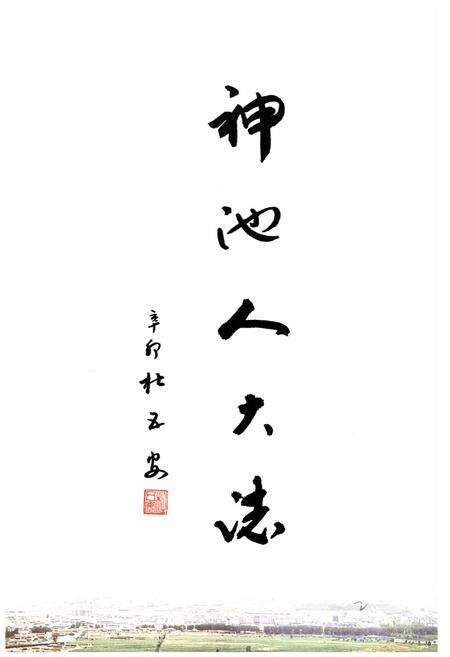 神池人大志
辛卯杜五安